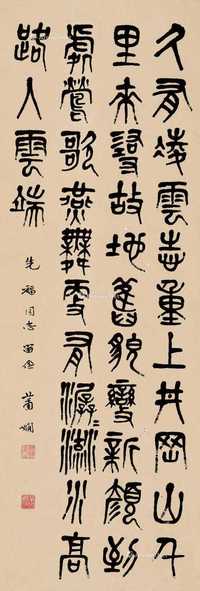 久有凌雲志重上井岡山千
里來尋故地舊貌變新顏到
處鶯歌燕舞更有潺潺流水高
路入雲端
先福同志留念 蕭嫻